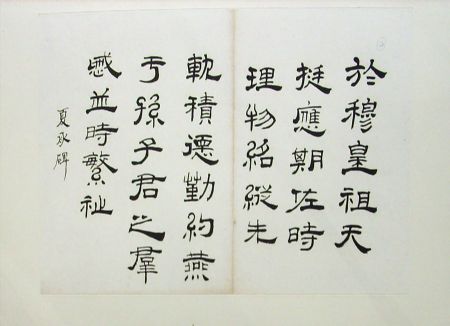 於穆皇祖天
挺應期佐時
理物紹縱先
軌積德勤約燕
于孫子君之羣
慼並時繁祉
夏承碑